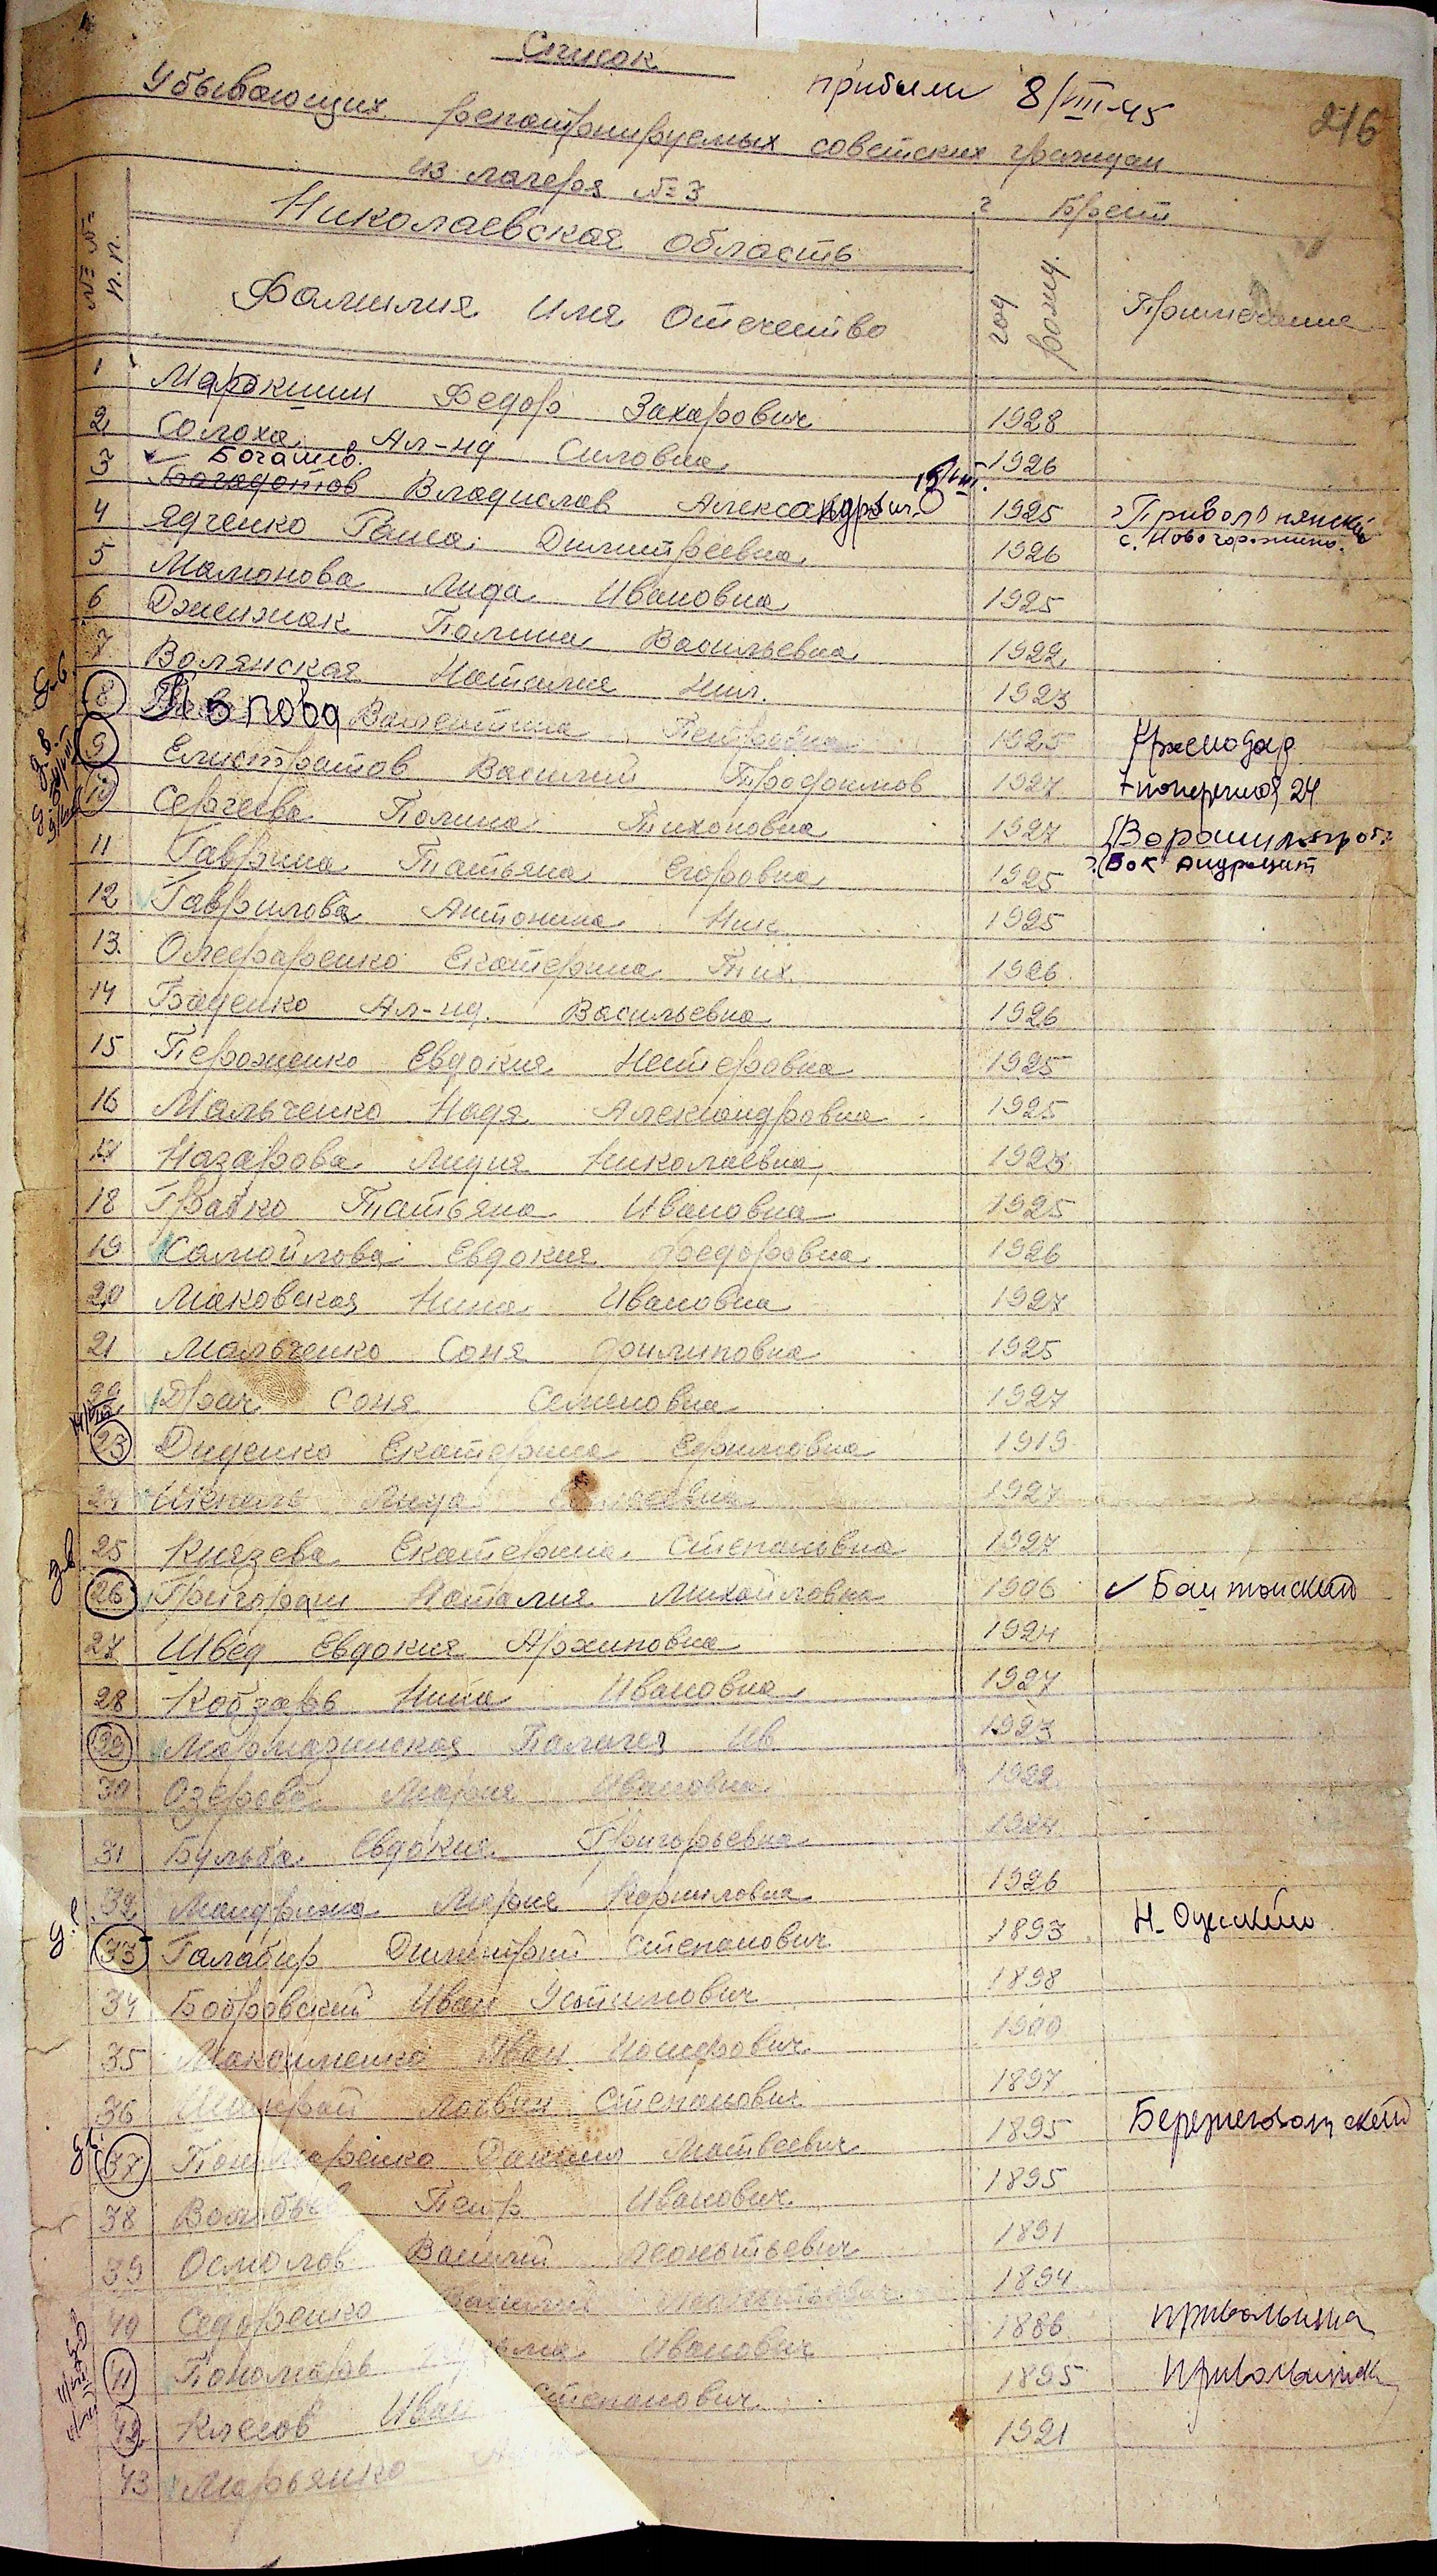 Список
прибыли 8/VIII-45
216
Убывающих репатрируемых советских граждан
из лагеря № 3 г Брест
№ № п.п.
Николаевская область
Фамилия Имя Отечество
год рожд.
Примечание
1 Маракшин Федор Захарович 1928
2 Солоха Ал-нд Силовна 1926
3 Богатов Владислав Александрович 1925
с. Новогорожено.
4 Ядченко Раиса Дмитреевна 1926
5 Мамонова Лида Ивановна 1925
6 Дженжак Полина Васильевна 1922
7 Волянская Наталия Ник. 1923
8 Валентина Петровна 1925 Краснодар
9 Елистратов Василий Трофимов 1927
10 Сергеева Полина Тихоновна 1927
11 Гаврина Татьяна Егоровна 1925
12 Гаврилова Антонина Ник. 1925
13. Олефиренко Екатерина Тих. 1926
14 Баденко Ал-нд. Васильевна 1926
15 Пероженко Евдокия Нестеровна 1925
16 Мальченко Надя Александровна 1925
17 Назарова Лидия Николаевна 1923
18 Грабко Татьяна Ивановна 1925
19 Самойлова Евдокия Федоровна 1926
20 Маковская Нина Ивановна 1927
21 Мальченко Соня Филиповна 1925
22 Драч Соня Семеновна 1927
23 Диденко Екатерина Ефимовна 1919
24 Шкепаль Лида 1927
25 Князева Екатерина Степановна 1927
26 Григораш Наталия Михайловна 1906 Баштанский
27 Швед Евдокия Архиповна 1924
28 Кобзарь Нина Ивановна 1927
29 Мармазинская Палагея Ив 1923
30 Озерова Мария Ивановна 1922
31 Бульба Евдокия Григорьевна 1924
32 Мандрыка Мария Корниловна 1926
33 Галабир Дмитрий Степанович 1893 Н-Одесский
34 Бобровский Иван Устимович 1898
35 Максименко Иван Иосифович 1900
36 Логвин Степанович 1897
37 Пономаренко Данило Матвеевич 1895 Березнеговатский
38 Петр Иванович 1895
39 Осмолов Василий Леонтьевич 1891
40 Сидоренко 1894
41 Пономарь Иванович 1886
42 Клесов Иван Степанович 1895
43 Марьянко 1921